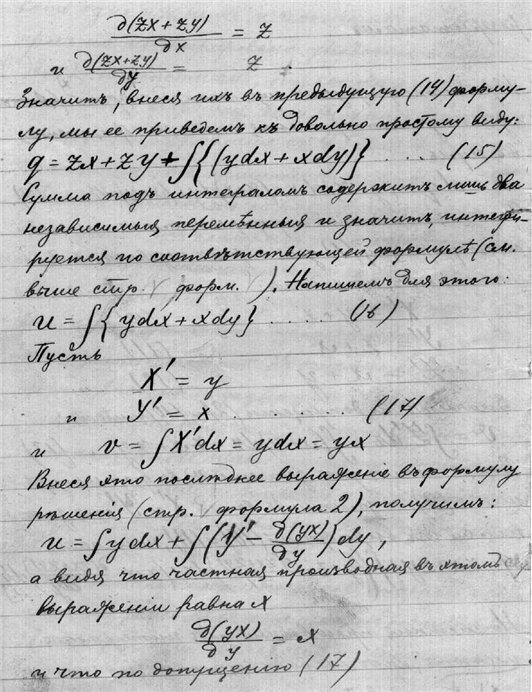 ∂(zx+zy)/∂x = z
и ∂(zx+zy)/∂y = z.
Значитъ, внеся ихъ въ предыдущую (14) форму-
лу, мы ее приведемъ къ довольно простому виду:
q = zx + zy + ∫{(ydx + xdy)} . . . . (15)
Сумма подъ интеграломъ содержитъ лишь два
независимыя перемѣнныя и значитъ, интегри-
руется по соотвѣтствующей формулѣ (см.
выше стр. форм. ). Напишемъ для этого:
u = ∫{ydx + xdy} . . . . . . (16)
Пусть
X' = y
и Y' = x . . . . . . . . (17)
и v = ∫X'dx = ydx = yx
Внеся это послѣднее выраженіе въ формулу
рѣшенія (стр. формула 2), получимъ:
u = ∫ydx + ∫(Y' − ∂(yx)/∂y)dy,
а видя что частная производная въ этомъ
выраженіи равна x
∂(yx)/∂y = x
и что по допущенію (17)